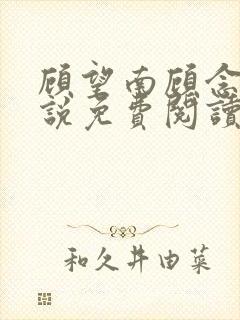 顾望南顾念
說免費閱讀
和久井由菜